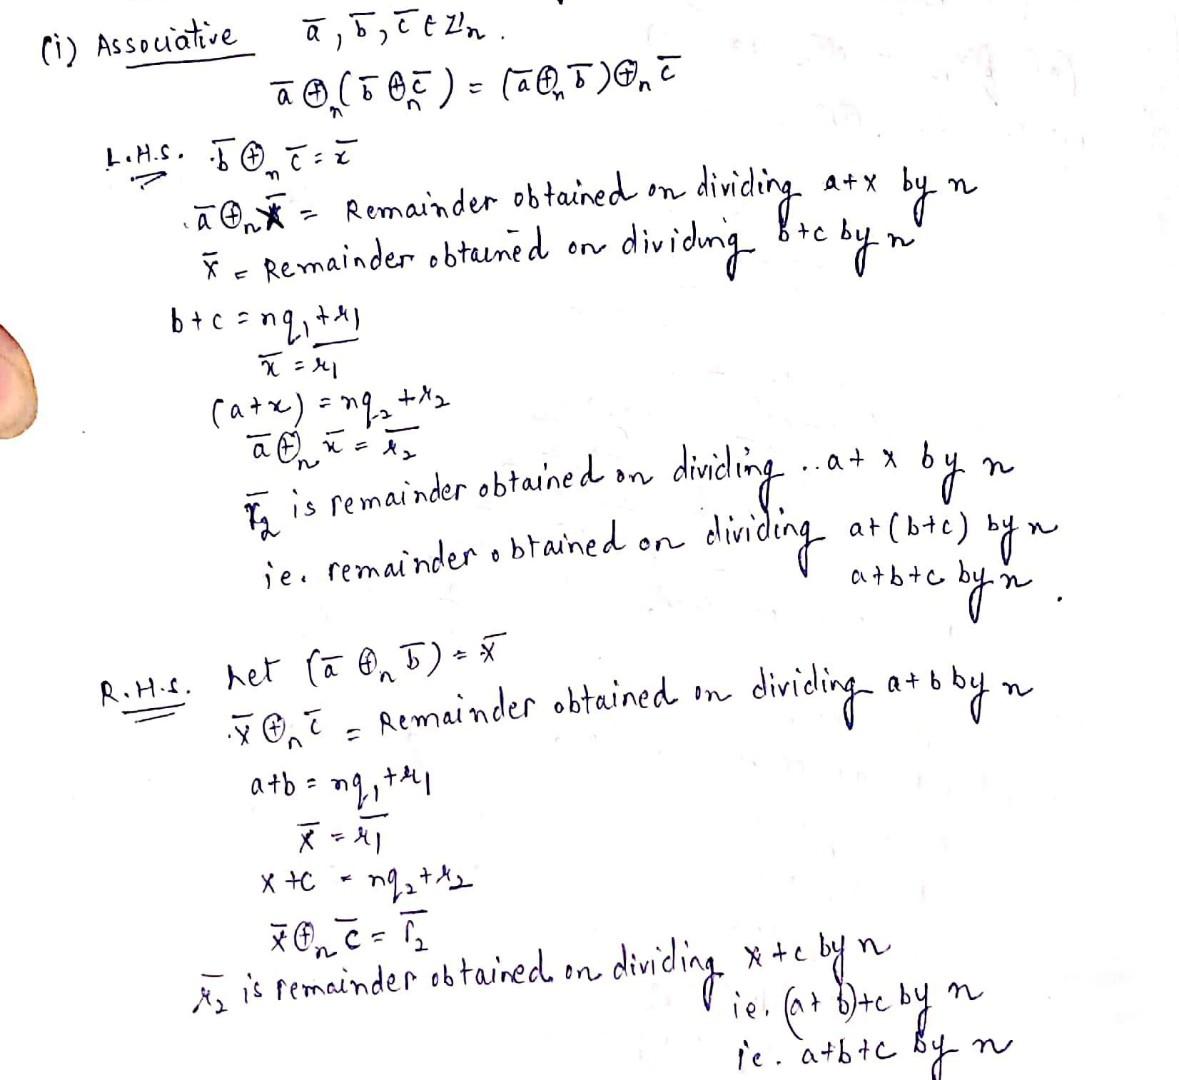 (i) Associative a̅, b̅, c̅ ∈ ℤn.
a̅ ⊕n (b̅ ⊕n c̅) = (a̅ ⊕n b̅) ⊕n c̅
L.H.S. b̅ ⊕n c̅ = x̅
a̅ ⊕n x̅ = Remainder obtained on dividing a+x by n
x̅ = Remainder obtained on dividing b+c by n
b+c = nq₁ + r₁
x̅ = r̅₁
(a+x) = nq₂ + r₂
a̅ ⊕n x̅ = r̅₂
r̅₂ is remainder obtained on dividing ..a+x by n
ie. remainder obtained on dividing a+(b+c) by n
a+b+c by n.
R.H.S. Let (a̅ ⊕n b̅) = x̅
x̅ ⊕n c̅ = Remainder obtained on dividing a+b by n
a+b = nq₁ + r₁
x̅ = r̅₁
x+c = nq₂ + r₂
x̅ ⊕n c̅ = r̅₂
r̅₂ is remainder obtained on dividing x+c by n
ie. (a+b)+c by n
ie. a+b+c by n